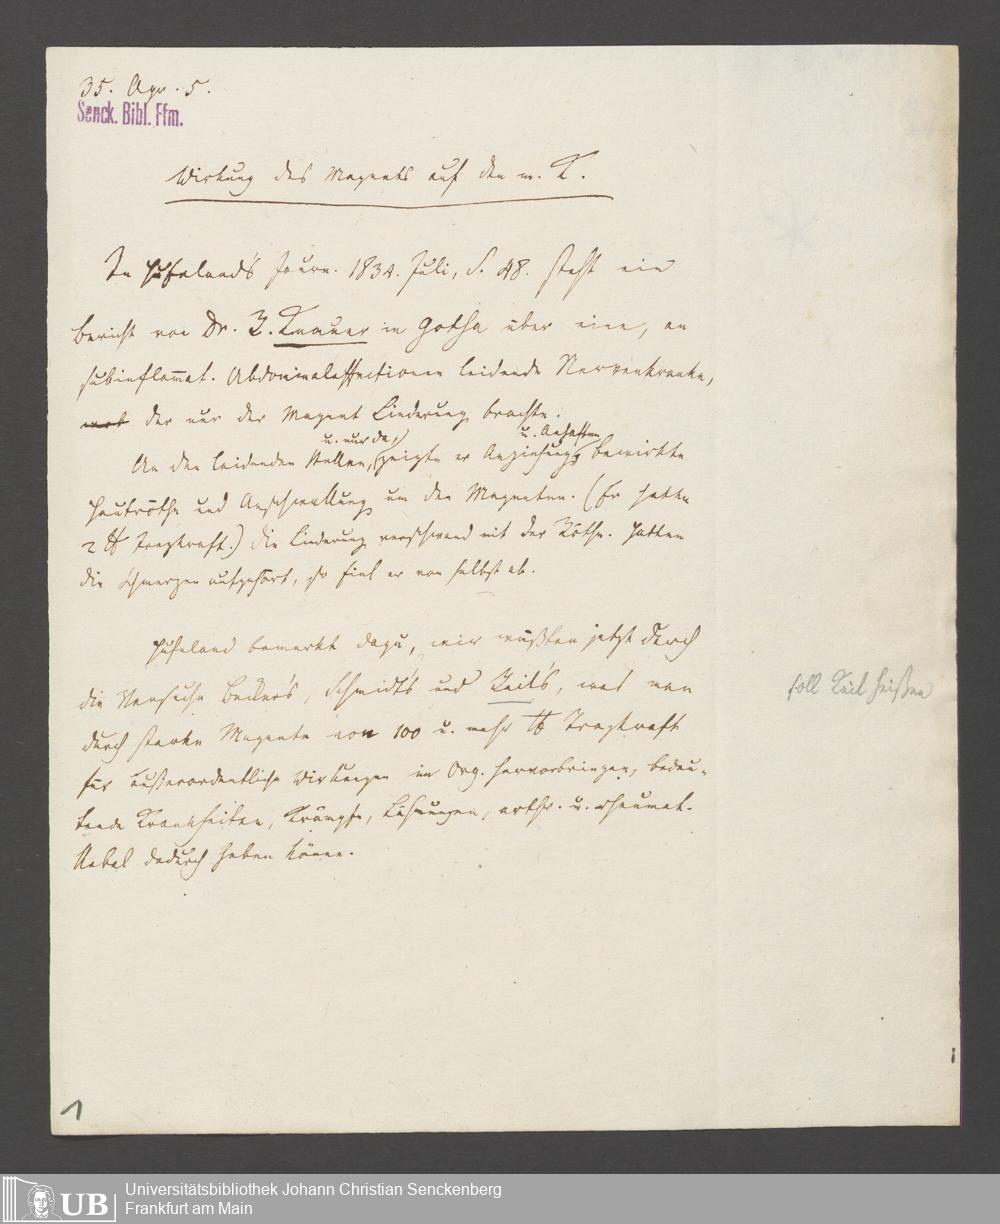 35. Apr. 5.
Senck. Bibl. Ffm.
Wirkung des Magnets auf den m. K.
In Hufeland's Journ. 1834. Juli, S. 48. steht ein
Bericht von Dr. Z. Knauer in Gotha über eine, an
subinflam̄at. Abdominalaffectionen leidende Nervenkranke,
der nur der Magnet Linderung brachte.
u. nur da, u. Anhaften
An den leidenden Stellen, zeigte er Anziehung, bewirkte
Hautröthe und Anschwellung um den Magneten. (Er hatte
2 ℔ Tragkraft.) Die Linderung verschwand mit der Röthe. Hatten
die Schmerzen aufgehört, so fiel er von selbst ab.
Hufeland bemerkt dazu, wir wüßten jetzt durch
die Versuche Becker's, Schmidt's und Keil's, was man
durch starke Magnete von 100 u. mehr ℔ Tragkraft
für außerordentliche Wirkungen im Org. hervorbringen, bedeu-
tende Krankheiten, Krämpfe, Lähmungen, arthr. u. rheumat.
Uebel dadurch heben könne.
soll Keil heißen
1
UB
Universitätsbibliothek Johann Christian Senckenberg
Frankfurt am Main